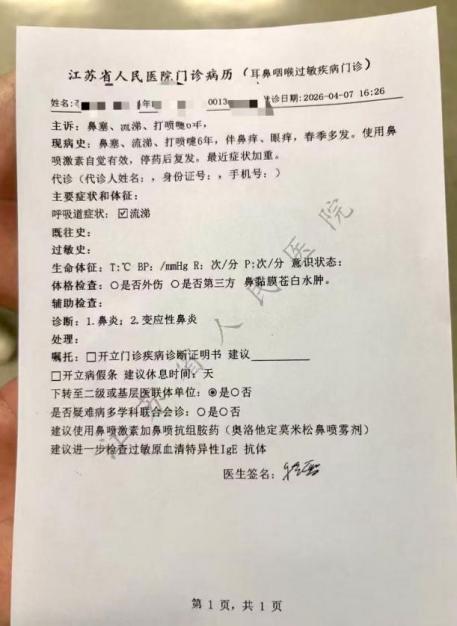 江苏省人民医院门诊病历（耳鼻咽喉过敏疾病门诊）
姓名: 年 0013 诊日期:2026-04-07 16:26
主诉: 鼻塞、流涕、打喷嚏6年,
现病史: 鼻塞、流涕、打喷嚏6年, 伴鼻痒、眼痒, 春季多发。使用鼻
喷激素自觉有效, 停药后复发。最近症状加重。
代诊（代诊人姓名: , 身份证号: , 手机号: ）
主要症状和体征:
呼吸道症状: ☑流涕
既往史:
过敏史:
生命体征: T:℃ BP: /mmHg R: 次/分 P:次/分 意识状态:
体格检查: ○是否外伤 ○是否第三方 鼻黏膜苍白水肿。
辅助检查:
诊断: 1.鼻炎; 2.变应性鼻炎
处理:
嘱托: □开立门诊疾病诊断证明书 建议
□开立病假条 建议休息时间: 天
下转至二级或基层医联体单位: ◉是○否
是否疑难病多学科联合会诊: ○是○否
建议使用鼻喷激素加鼻喷抗组胺药（奥洛他定莫米松鼻喷雾剂）
建议进一步检查过敏原血清特异性IgE 抗体
医生签名:
江苏省人民医院
第 1 页, 共 1 页